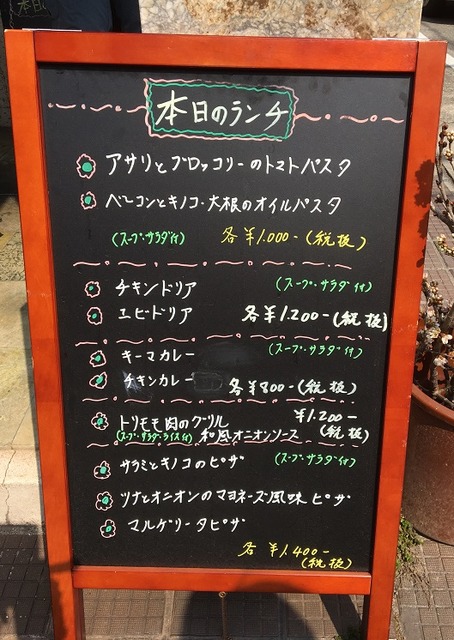 本日のランチ
アサリとブロッコリーのトマトパスタ
ベーコンとキノコ・大根のオイルパスタ
(スープ・サラダ付) 各¥1.000-(税抜)
チキンドリア (スープ・サラダ付)
エビドリア 各¥1.200-(税抜)
キーマカレー (スープ・サラダ付)
チキンカレー 各¥800-(税抜)
トリモモ肉のグリル ¥1.200-
(スープ・サラダ・ライス付) 和風オニオンソース (税抜)
サラミとキノコのピザ (スープ・サラダ付)
ツナとオニオンのマヨネーズ風味ピザ
マルゲリータピザ
各¥1.400-
(税抜)